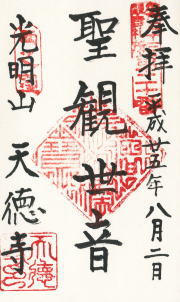 奉拝
平成廿五年八月二日
聖観世音
光明山
天徳寺